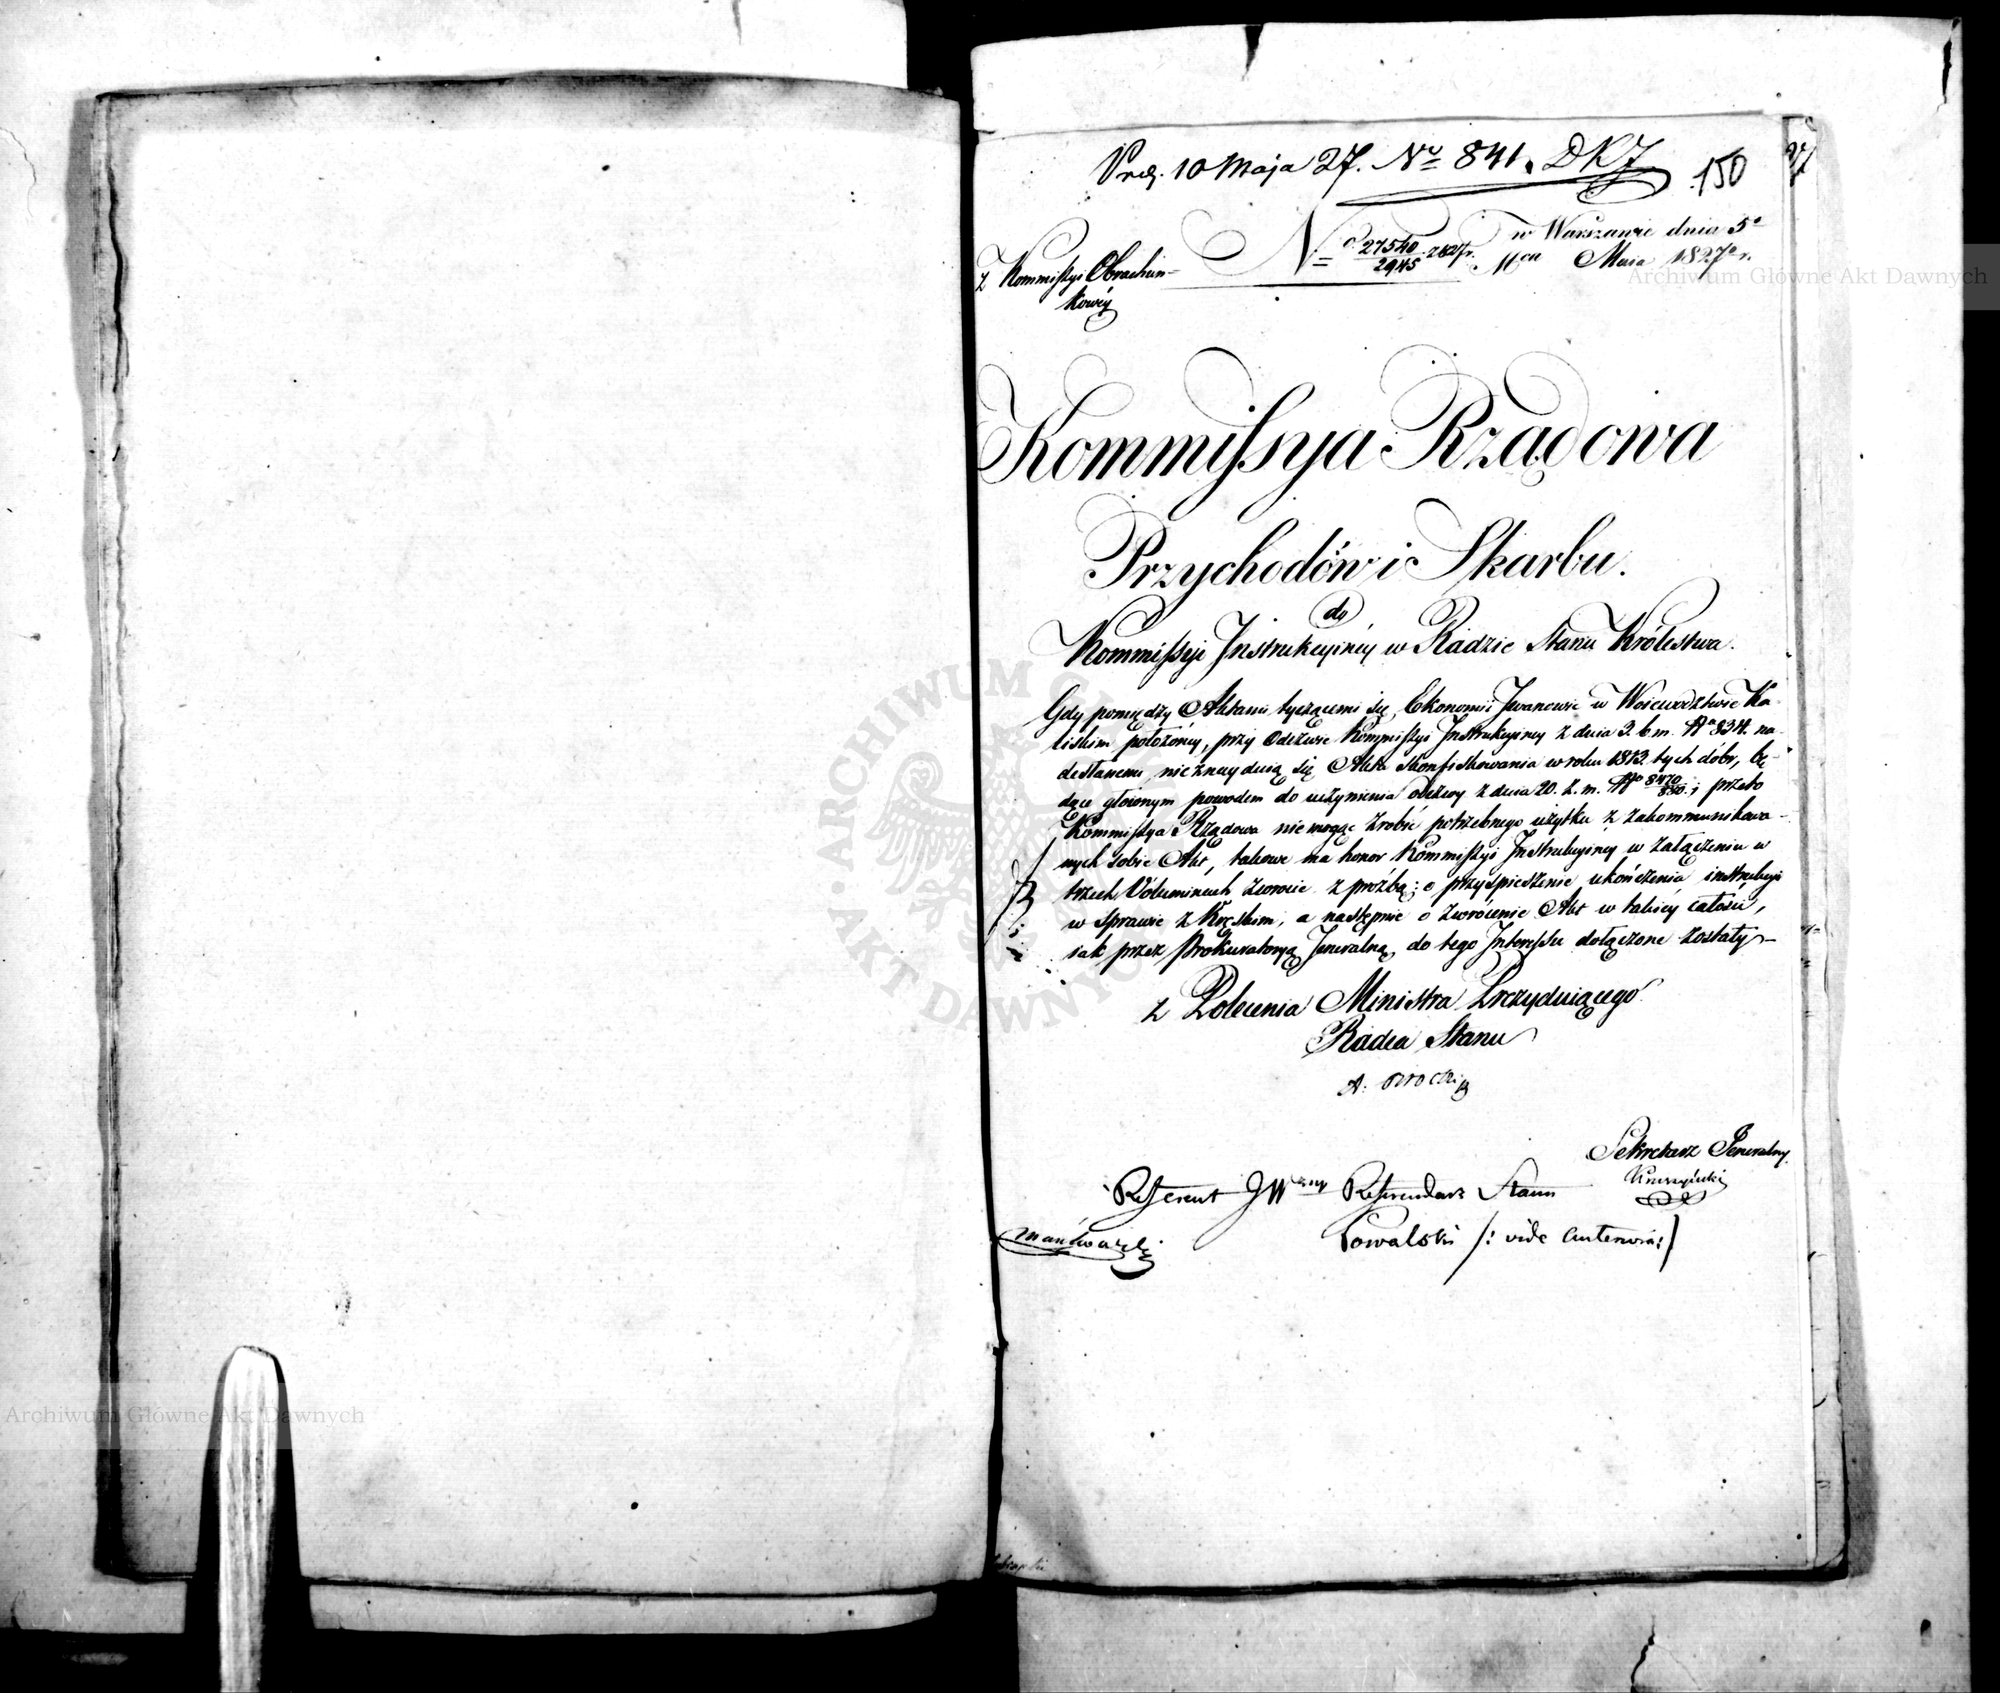 Prez. 10 Maja 27. No 841. DKJ
150
Z Kommissyi Obrachun-
kowéy
No 27540/2945 1827r.
w Warszawie dnia 5o
Mca Maia 1827o r.
Kommissya Rządowa
Przychodów i Skarbu.
do
Kommissyi Instrukcyinéy w Radzie Stanu Królestwa.
Gdy pomiędzy Aktami tyczącemi się Ekonomii Iwanowie w Woiewództwie Ka-
liskim położonéy, przy Odezwie Kommissyi Instrukcyinéy z dnia 3. b. m. No 834. na-
desłanemi, nieznayduią się Akta skonfiskowania w roku 1813. tych dóbr, bę-
dące głównym powodem do uczynienia odezwy z dnia 20. z. m. No 8470/830.; i przeto
Kommissya Rządowa niemogąc zrobić potrzebnego użytku z zakommunikowa-
nych sobie Akt, takowe ma honor Kommissyi Instrukcyinéy w załączeniu w
trzech Voluminach zwrócic z proźbą: o przyspieszenie ukończenia instrukcyi
w Sprawie z Kręskim, a następnie o zwrócenie Akt w takiéy całości,
iak przez Prokuratoryą Jeneralną do tego Interessu dołączone zostały
z Polecenia Ministra Przyduiącego
Radca Stanu
Sekretarz Jeneralny
Referent JWny Referendarz Stanu
Kowalski /: vide anteriora :/
Archiwum Główne Akt Dawnych
ARCHIWUM GŁÓWNE AKT DAWNYCH
Archiwum Główne Akt Dawnych